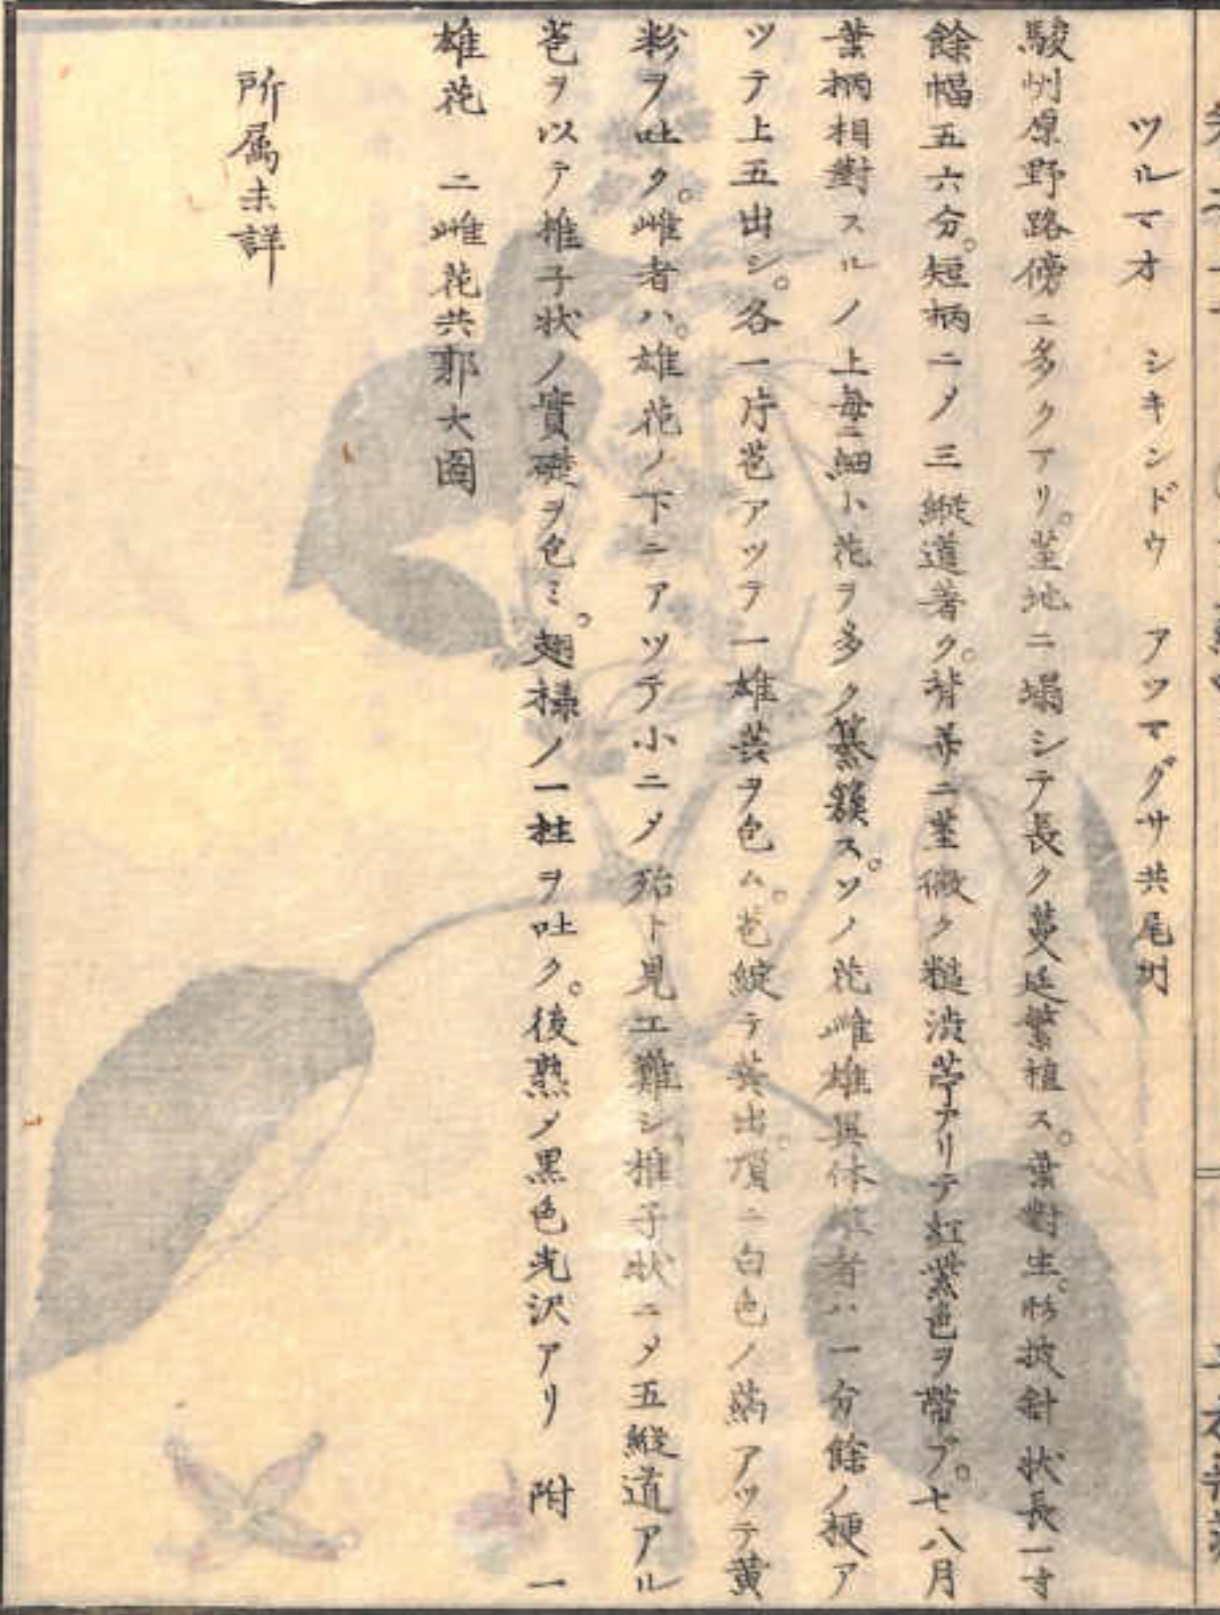 ツルマオ シキンドウ アツマグサ共尾州
駿州原野路傍ニ多クアリ。茎地ニ塌シテ長ク蔓延繁植ス。葉對生。形披針状長一寸
餘幅五六分。短柄ニメ三縦道著ク。背茎ニ茎微ク糙渋苧アリテ紅紫色ヲ帯ブ。七八月
葉柄相對スルノ上毎ニ細小花ヲ多ク纂簇ス。ソノ花雌雄異体雄者ハ一分餘ノ梗ア
ツテ上五出シ。各一片苞アツテ一雄蕋ヲ包ム。苞綻テ蕋出。頂ニ白色ノ葯アツテ黄
粉ヲ吐ク。雌者ハ。雄花ノ下ニアツテ小ニメ殆ト見エ難シ。椎子状ニメ五縦道アル
苞ヲ以テ椎子状ノ實礎ヲ包ミ。翅様ノ一柱ヲ吐ク。後熟メ黒色光沢アリ 附 一
雄花 二雌花共郭大圖
所属未詳